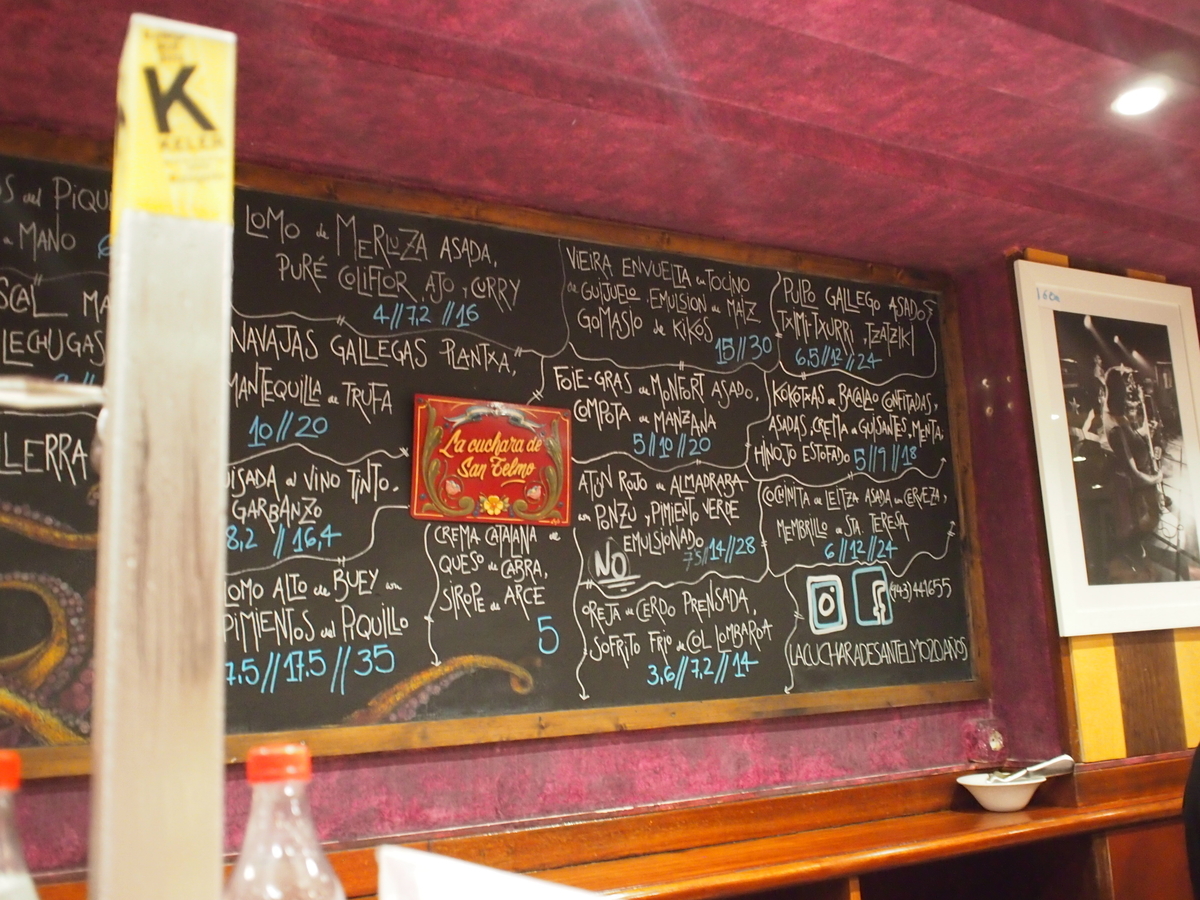 K
KELER
del PIQU
a MANO
LECHUGAS
LOMO de MERLUZA ASADA,
PURÉ COLIFLOR AJO, CURRY
4//7,2//16
NAVAJAS GALLEGAS PLANTXA,
MANTEQUILLA de TRUFA
10//20
VINO TINTO.
GARBANZO
8,2//16,4
LOMO ALTO de BUEY con
PIMIENTOS del PIQUILLO
7.5//17.5//35
La cuchara de
San Telmo
CREMA CATALANA de
QUESO de CABRA,
SIROPE de ARCE
5
VIEIRA ENVUELTA en TOCINO
de GUIJUELO, EMULSION de MAÍZ
GOMASIO de KIKOS
15//30
FOIE-GRAS de MONFORT ASADO,
COMPOTA de MANZANA
5//10//20
ATÚN ROJO de ALMADRABA
en PONZU, PIMIENTO VERDE
EMULSIONADO
NO
7,5//14//28
OREJA de CERDO PRENSADA,
SOFRITO FRIO de COL LOMBARDA
3,6//7,2//14
PULPO GALLEGO ASADO
TXIMI-TXURRI, TZATZIKI
6,5//12//24
KOKOTXAS de BACALAO CONFITADAS,
ASADAS, CREMA de GUISANTES, MENTA,
HINOJO ESTOFADO 5//9//18
COCHINITA de LEITZA ASADA en CERVEZA,
MEMBRILLO de STA. TERESA
6//12//24
(943)441655
LACUCHARADESANTELMO20AÑOS